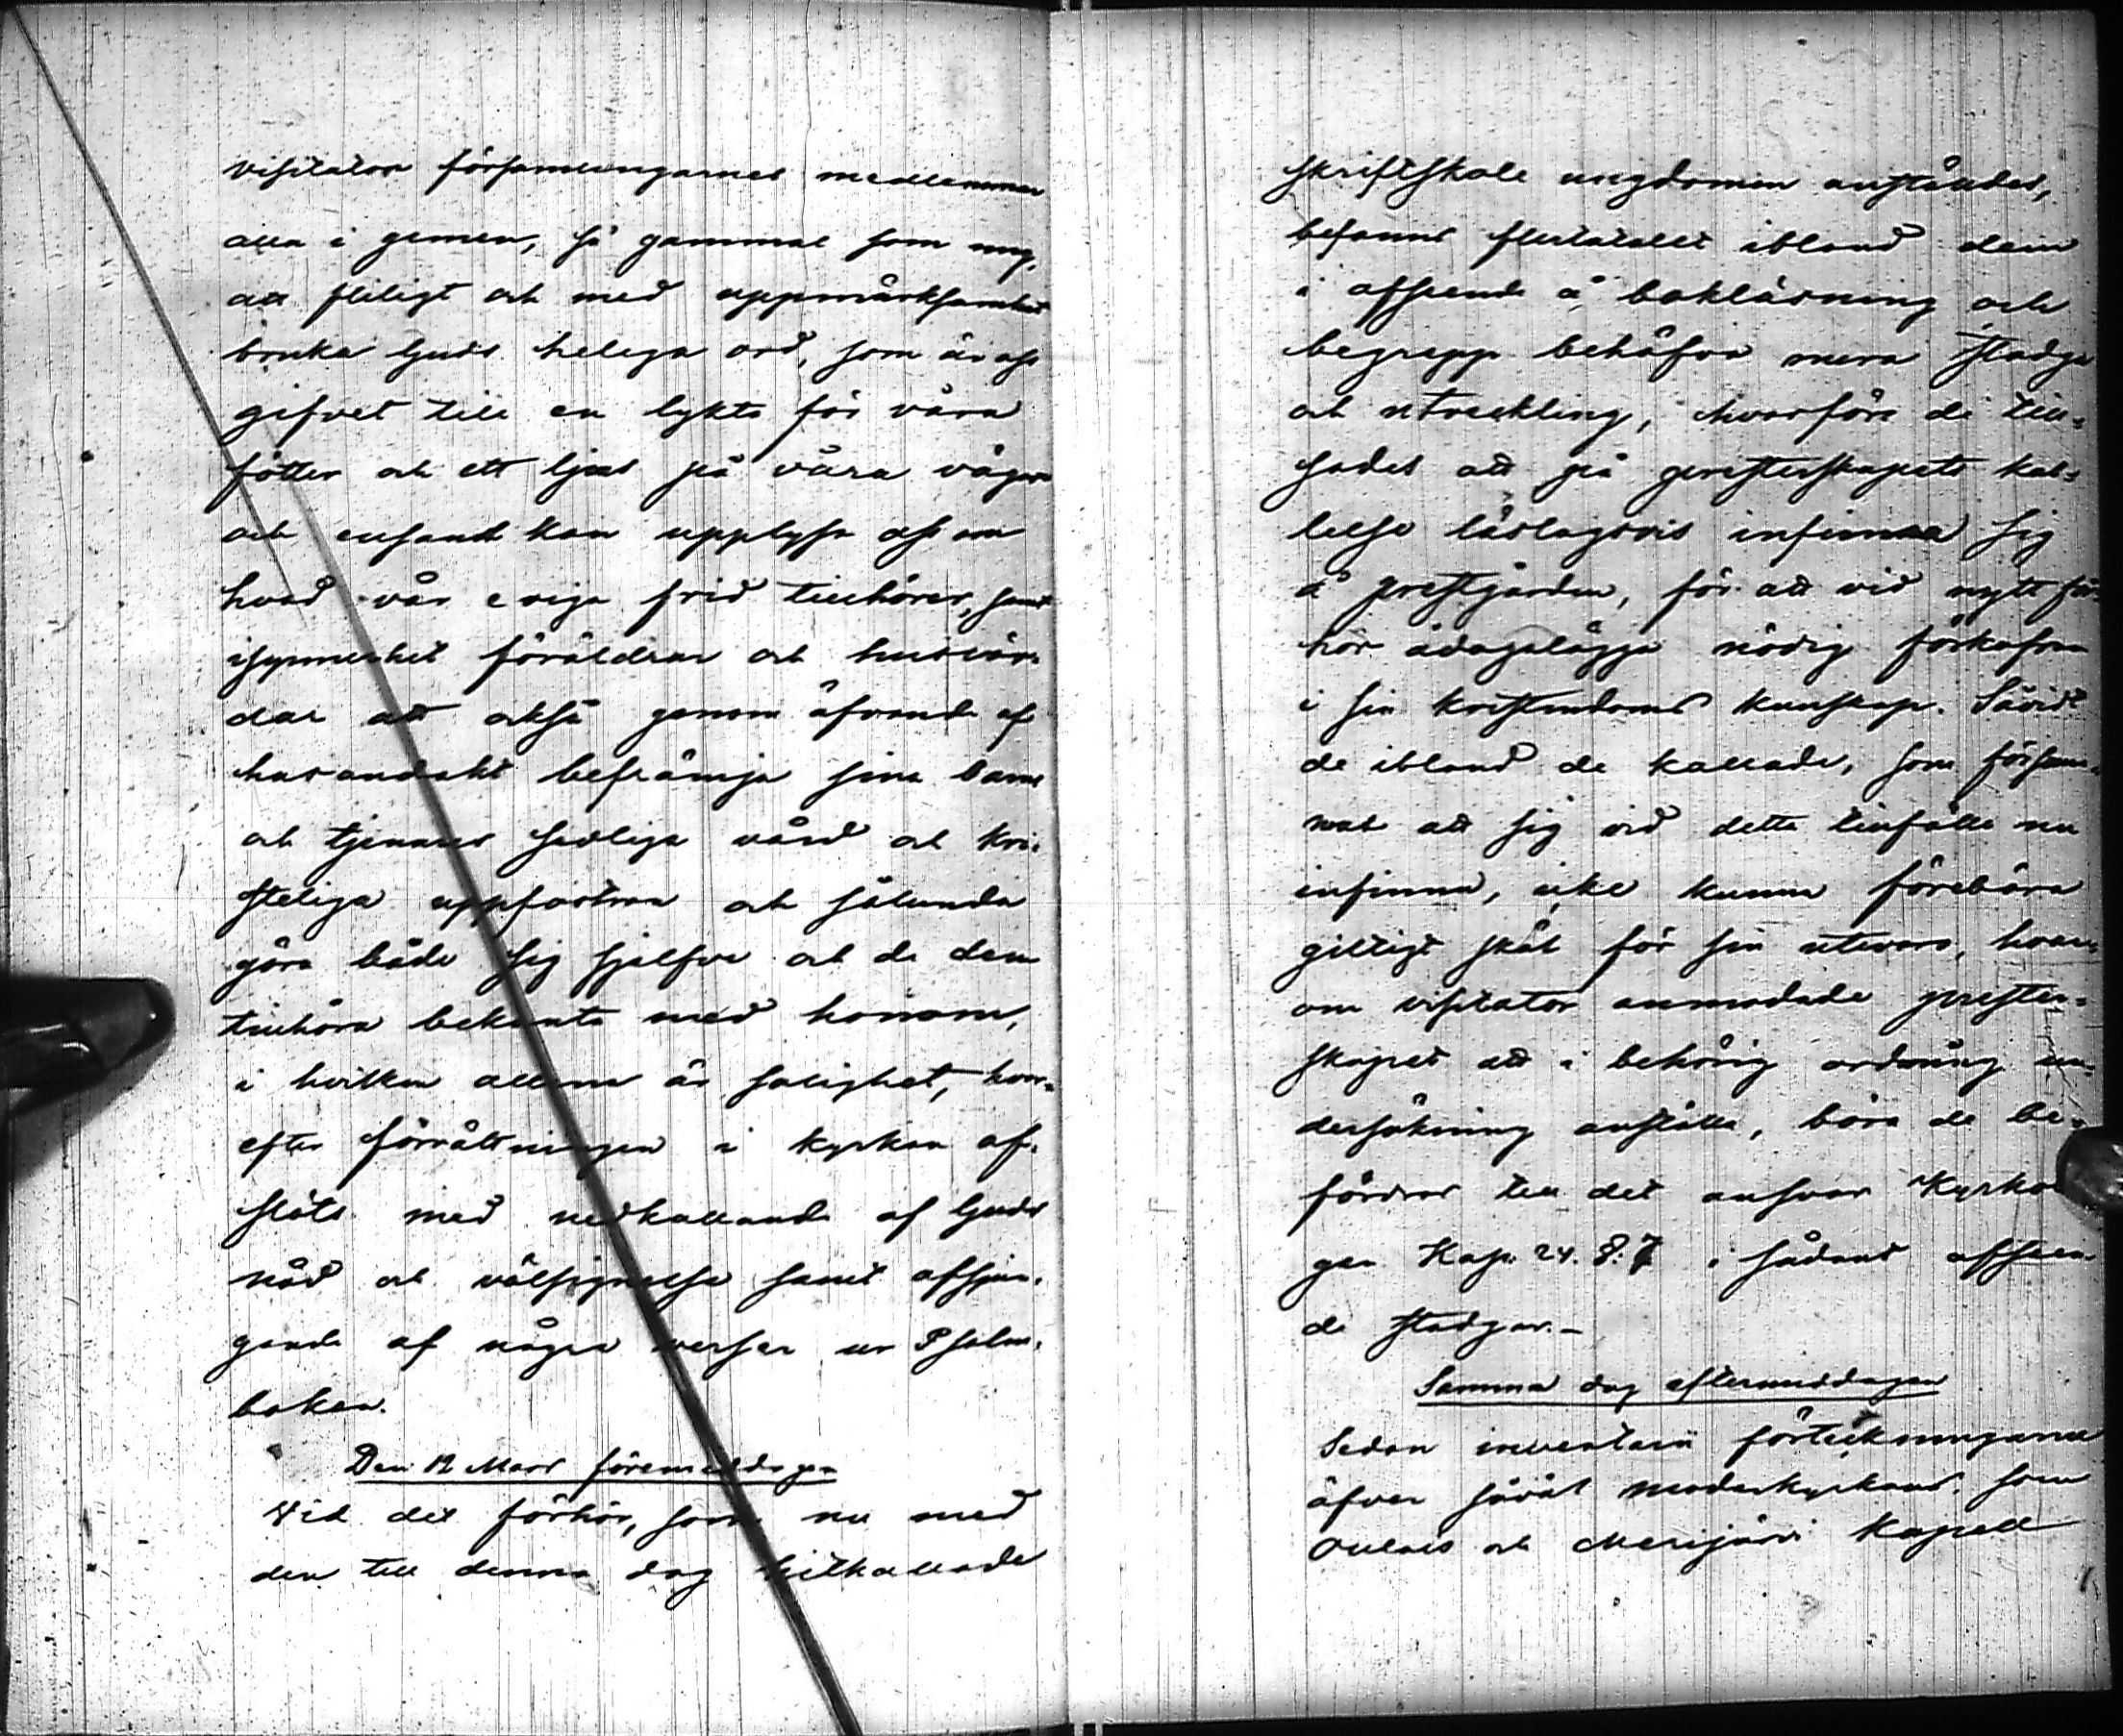 visitator församlingarnes medlemmar
alla i gemen, så gammal som ung,
att flitigt och med uppmärksamhet
bruka Guds heliga ord, som är oss
gifvet till en lykta för våra
fötter och ett ljus på våra vägar
och ensamt kan upplysa oss om
hvad vår eviga frid tillhörer, samt
isynnerhet föräldrar och husbön-
dar att också genom öfvande af
husandakt befrämja sina barns
och tjenares sedliga vård och kri-
steliga uppfostran och sålunda
göra både sig sjelfve och de dem
tillhöra bekanta med honom,
i hvilken allena är salighet, hvar-
efter förrättningen i kyrkan af-
slöts med nedkallande af Guds
nåd och välsignelse samt afsjun-
gande af några verser ur Psalm-
boken.
Den 12 Mars föremiddagen
Vid det förhör, som nu med
den till denna dag hitkallade
skriftskole ungdomen anstäldes,
befanns flertalet ibland dem
i afseende å bokläsning och
begrepp behöfva mera stadga
och utveckling, hvarföre de till-
sades att på presterskapets kal-
lelse läslagsvis infinna sig
å prestgården, för att vid nytt för-
hör ådagalägga nödig förkofran
i sin kristendoms kunskap. Såvidt
de ibland de kallade, som försum-
mat att sig vid detta tillfälle nu
infinna, icke kunna förebära
giltigt skäl för sin utevaro, hvar-
om visitator anmodade prester-
skapet att i behörig ordning un-
dersökning anställa, böra de be-
fordras till det ansvar Kyrkola
gen Kap. 24. §. 7 i sådant afseen
de stadgar.-
Samma dag eftermiddagen
Sedan inventarii förteckningarna
öfver såväl moderkyrkans som
Oulais och Merijärvi Kapell